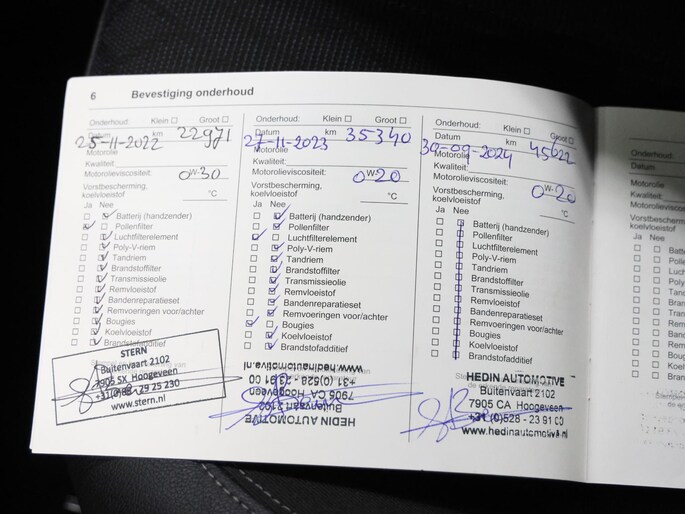 6 Bevestiging onderhoud
Onderhoud: Klein ☐ Groot ☐
Datum 25-11-2022 km 22971
Motorolie
Kwaliteit:
Motorolieviscositeit: 0W-30
Vorstbescherming,
koelvloeistof °C
Ja Nee
Batterij (handzender)
Pollenfilter
Luchtfilterelement
Poly-V-riem
Tandriem
Brandstoffilter
Transmissieolie
Remvloeistof
Bandenreparatieset
Remvoeringen voor/achter
Bougies
Koelvloeistof
Brandstofadditief
STERN
Buitenvaart 2102
7905 SX Hoogeveen
www.stern.nl
Onderhoud: Klein ☐ Groot ☐
Datum 27-11-2023 km 35340
Motorolie
Kwaliteit:
Motorolieviscositeit: 0W-20
Vorstbescherming,
koelvloeistof °C
Ja Nee
Batterij (handzender)
Pollenfilter
Luchtfilterelement
Poly-V-riem
Tandriem
Brandstoffilter
Transmissieolie
Remvloeistof
Bandenreparatieset
Remvoeringen voor/achter
Bougies
Koelvloeistof
Brandstofadditief
HEDIN AUTOMOTIVE
Buitenvaart 2102
7905 CA Hoogeveen
+31 (0)528 - 23 91 00
www.hedinautomotive.nl
Onderhoud: Klein ☐ Groot ☐
Datum 30-09-2024 km 45622
Motorolie
Kwaliteit:
Motorolieviscositeit: 0W-20
Vorstbescherming,
koelvloeistof °C
Ja Nee
Batterij (handzender)
Pollenfilter
Luchtfilterelement
Poly-V-riem
Tandriem
Brandstoffilter
Transmissieolie
Remvloeistof
Bandenreparatieset
Remvoeringen voor/achter
Bougies
Koelvloeistof
Brandstofadditief
HEDIN AUTOMOTIVE
Buitenvaart 2102
7905 CA Hoogeveen
+31 (0)528 - 23 91 00
www.hedinautomotive.nl
Onderhoud:
Datum
Motorolie
Kwaliteit:
Motorolieviscosi
Vorstbescherming,
koelvloeistof
Ja Nee
Batte
Polle
Luch
Poly
Tan
Bra
Tra
Re
Ba
Re
Bo
K
B